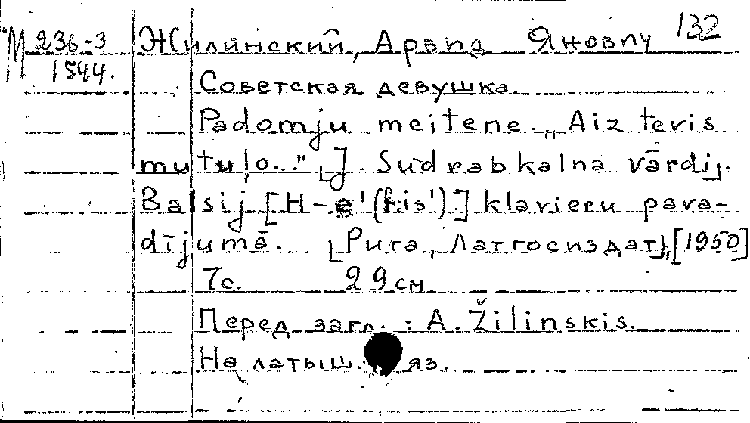 М 236-3 Жилинский, Арвид Янович 132
1544.
Советская девушка.
Padomju meitene „Aiz tevis
mu tuļo..." [J. Sudrabkalna vārdi].
Balsij [H-e'(fis')] klavieru pava-
dījumā. [Рига, Латгосиздат], [1950]
7с. 29 см
Перед загл.: A. Žilinskis.
На латыш. яз.